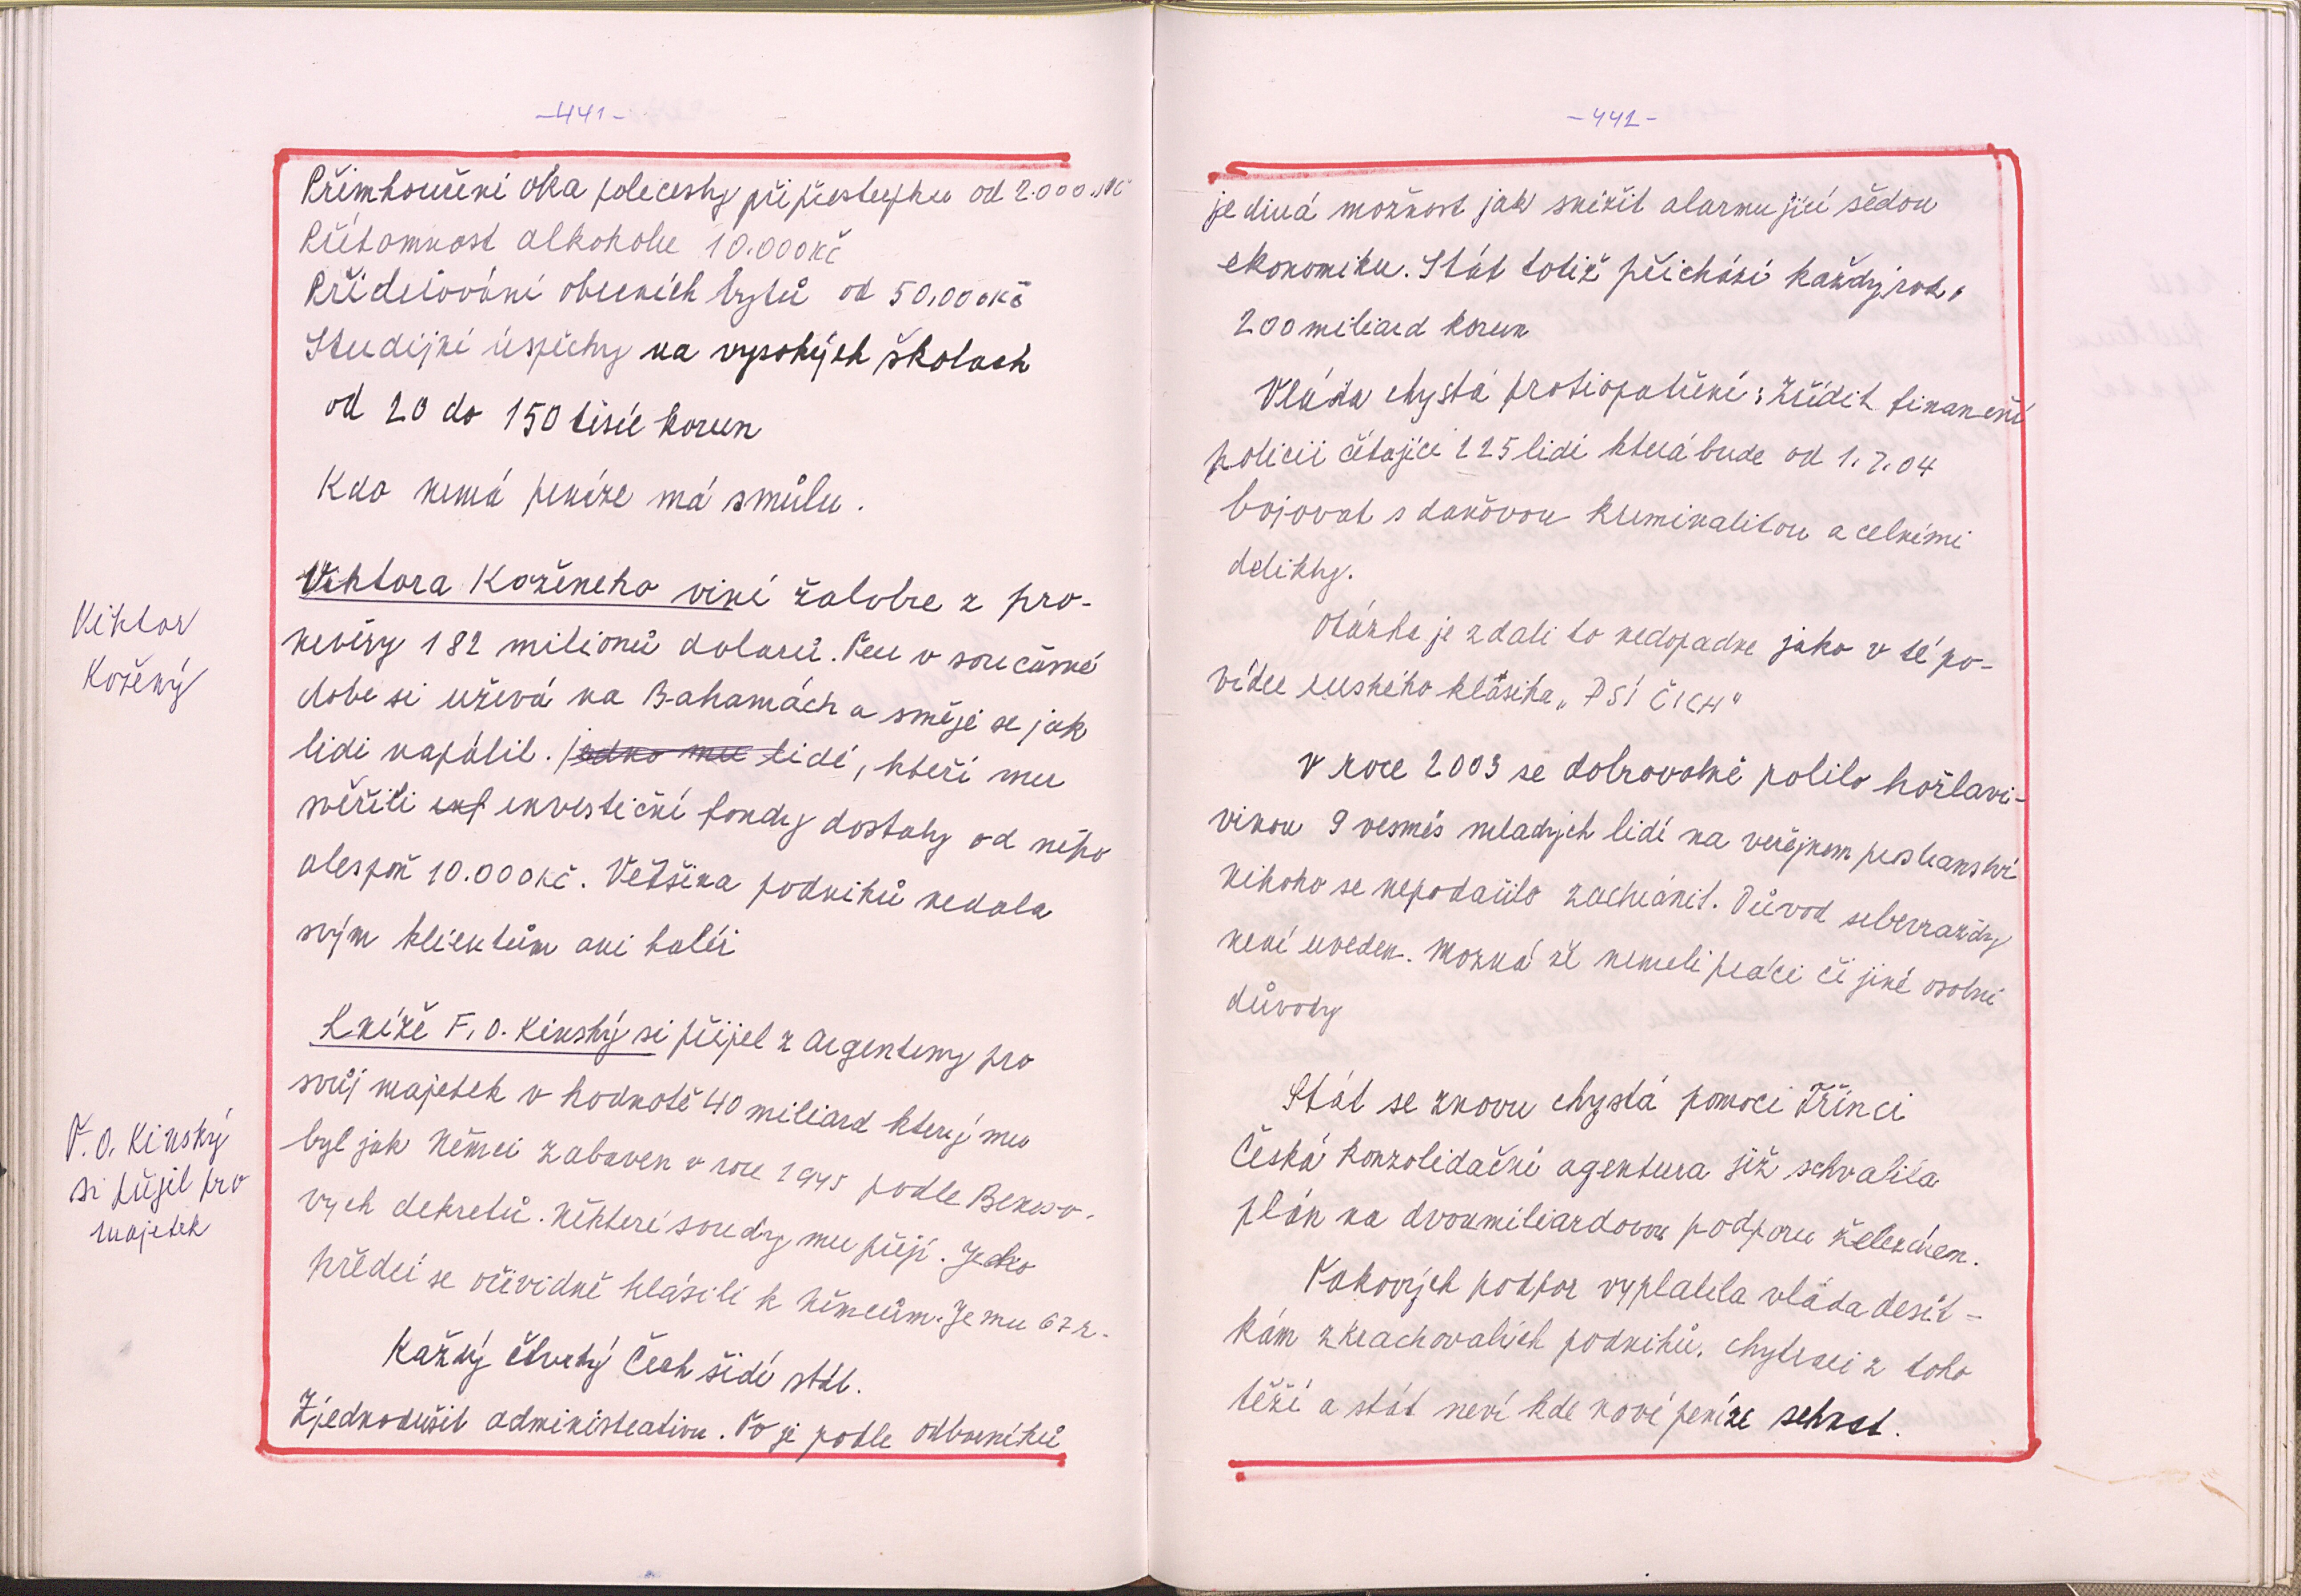 -441-
Přimhouření oka policisty při přestupku od 2.000 Kč
Přítomnost alkoholu 10.000Kč
Přidelování obecních bytů od 50.000Kč
Studijní úspěchy na vysokých školach
od 20 do 150 tisíc korun
Kdo nemá peníze má smůlu.
Viktor
Kožený
Viktora Koženeho viní žalobce z pro-
nevěry 182 milionů dolarů. Ten v současné
dobe si užívá na Bahamách a směje se jak
lidi napálil. jedno mu lidi, kteří mu
svěřili inf investiční fondy dostaly od něho
alespoň 10.000Kč. Vetšina podniků nedala
svým klientům ani halíř
F.O. Kinský
si přijel pro
majetek
Kníže F.O. Kinský si přijel z Argentiny pro
svůj majetek v hodnotě 40 miliard který mu
byl jak Němci zabaven v roce 1945 podle Beneso-
vych dekretů. Některi soudy mu přejí. Jeho
předci se očividně hlásili k Němcům. Je mu 67 r.
Každý čtvrtý Čech šidí stát.
Zjednodušit administrativu. To je podle odborníků
-442-
jediná možnost jak snížit alarmující šedou
ekonomiku. Stát totiž přichází každý rok o
200 miliard korun
Vláda chystá protiopatření: Zřídit finanční
policii čítající 225 lidí která bude od 1.7.04
bojovat s daňovou kriminalitou a celními
delikty.
Otázka je zdali to nedopadne jako v té po-
vídce ruského klasika „PSÍ ČICH"
V roce 2003 se dobrovolně polilo hořlavi-
vinou 9 vesměs mladých lidí na veřejnem prostranství
nikoho se nepodařilo zachránit. Důvod sebevraždy
není uveden. Možná že nemeli práci či jiné osobní
důvody
Stát se znovu chystá pomoci Třinci
Česká konzolidační agentura již schvalila
plán na dvoumiliardovou podporu železáren.
Takových podpor vyplatila vláda desít-
kám zkrachovalích podniků. chytraci z toho
těží a stát neví kde nové peníze sehnat.